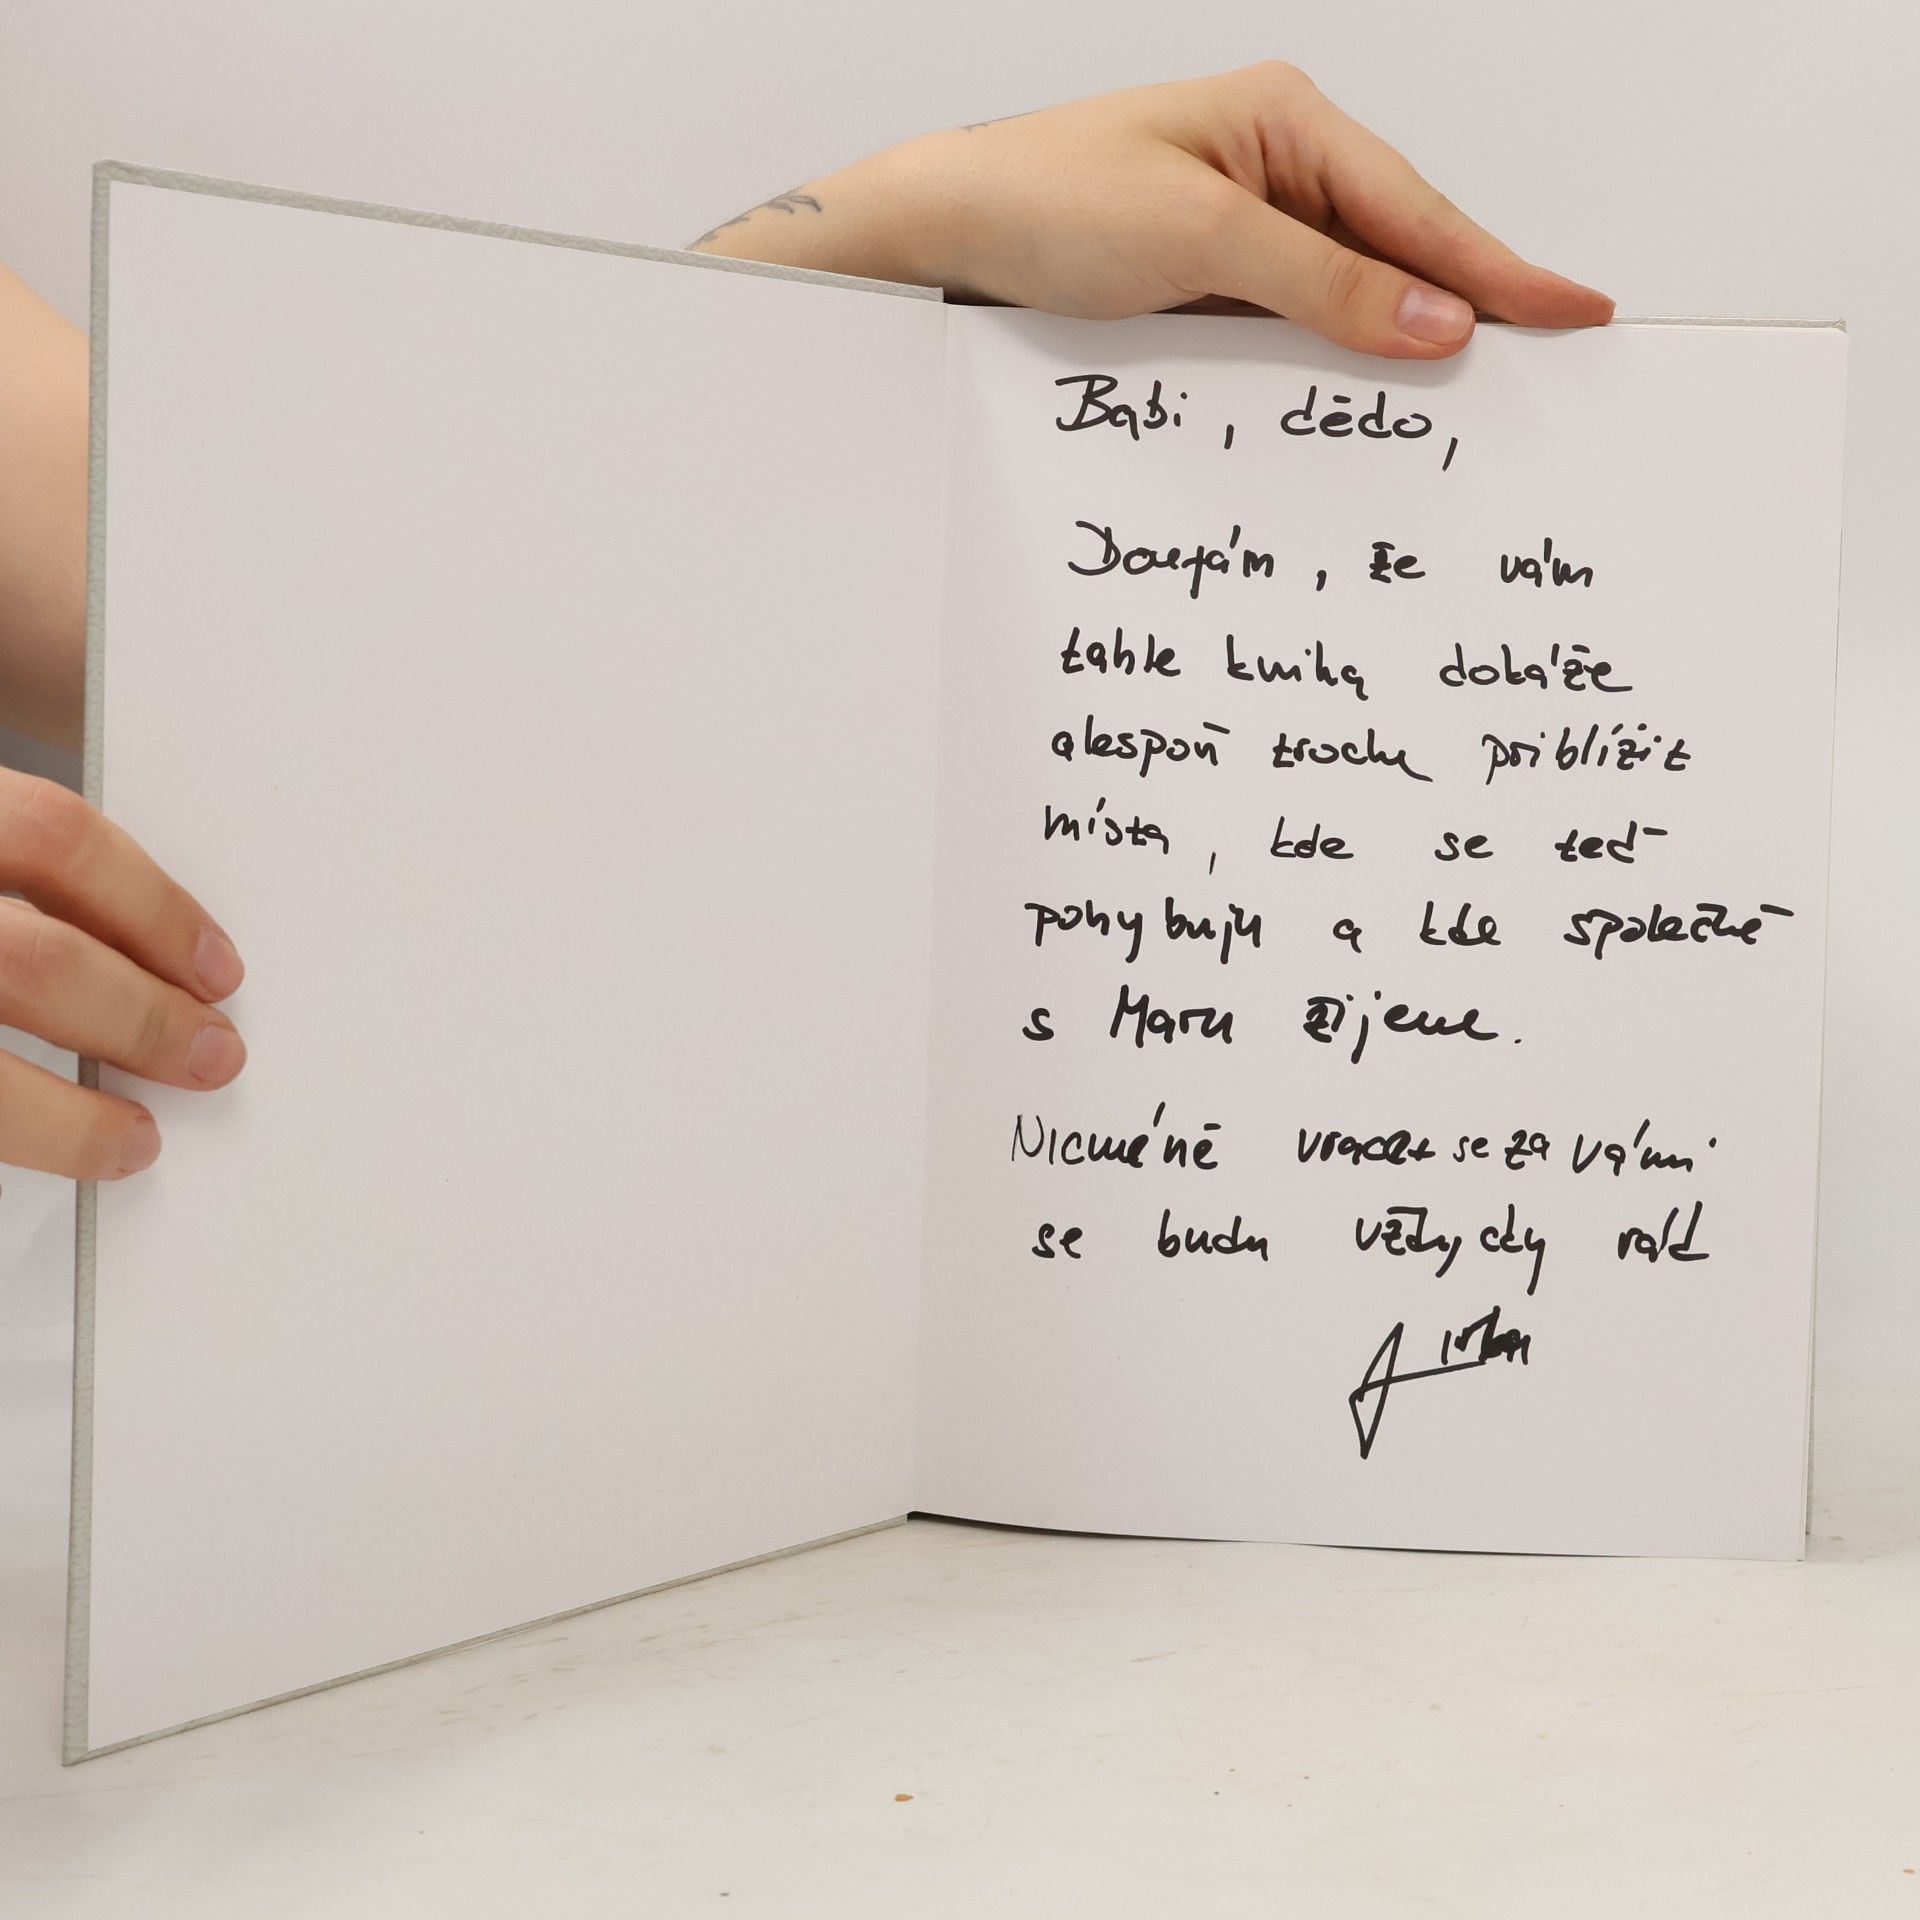 Babi, dědo,
Doufám, že vám
tahle kniha dokáže
alespoň trochu priblížit
místa, kde se teď
pohybuju a kde společně
s Maru žijeme.
Nicméně vracet se za vámi
se budu vždycky rád